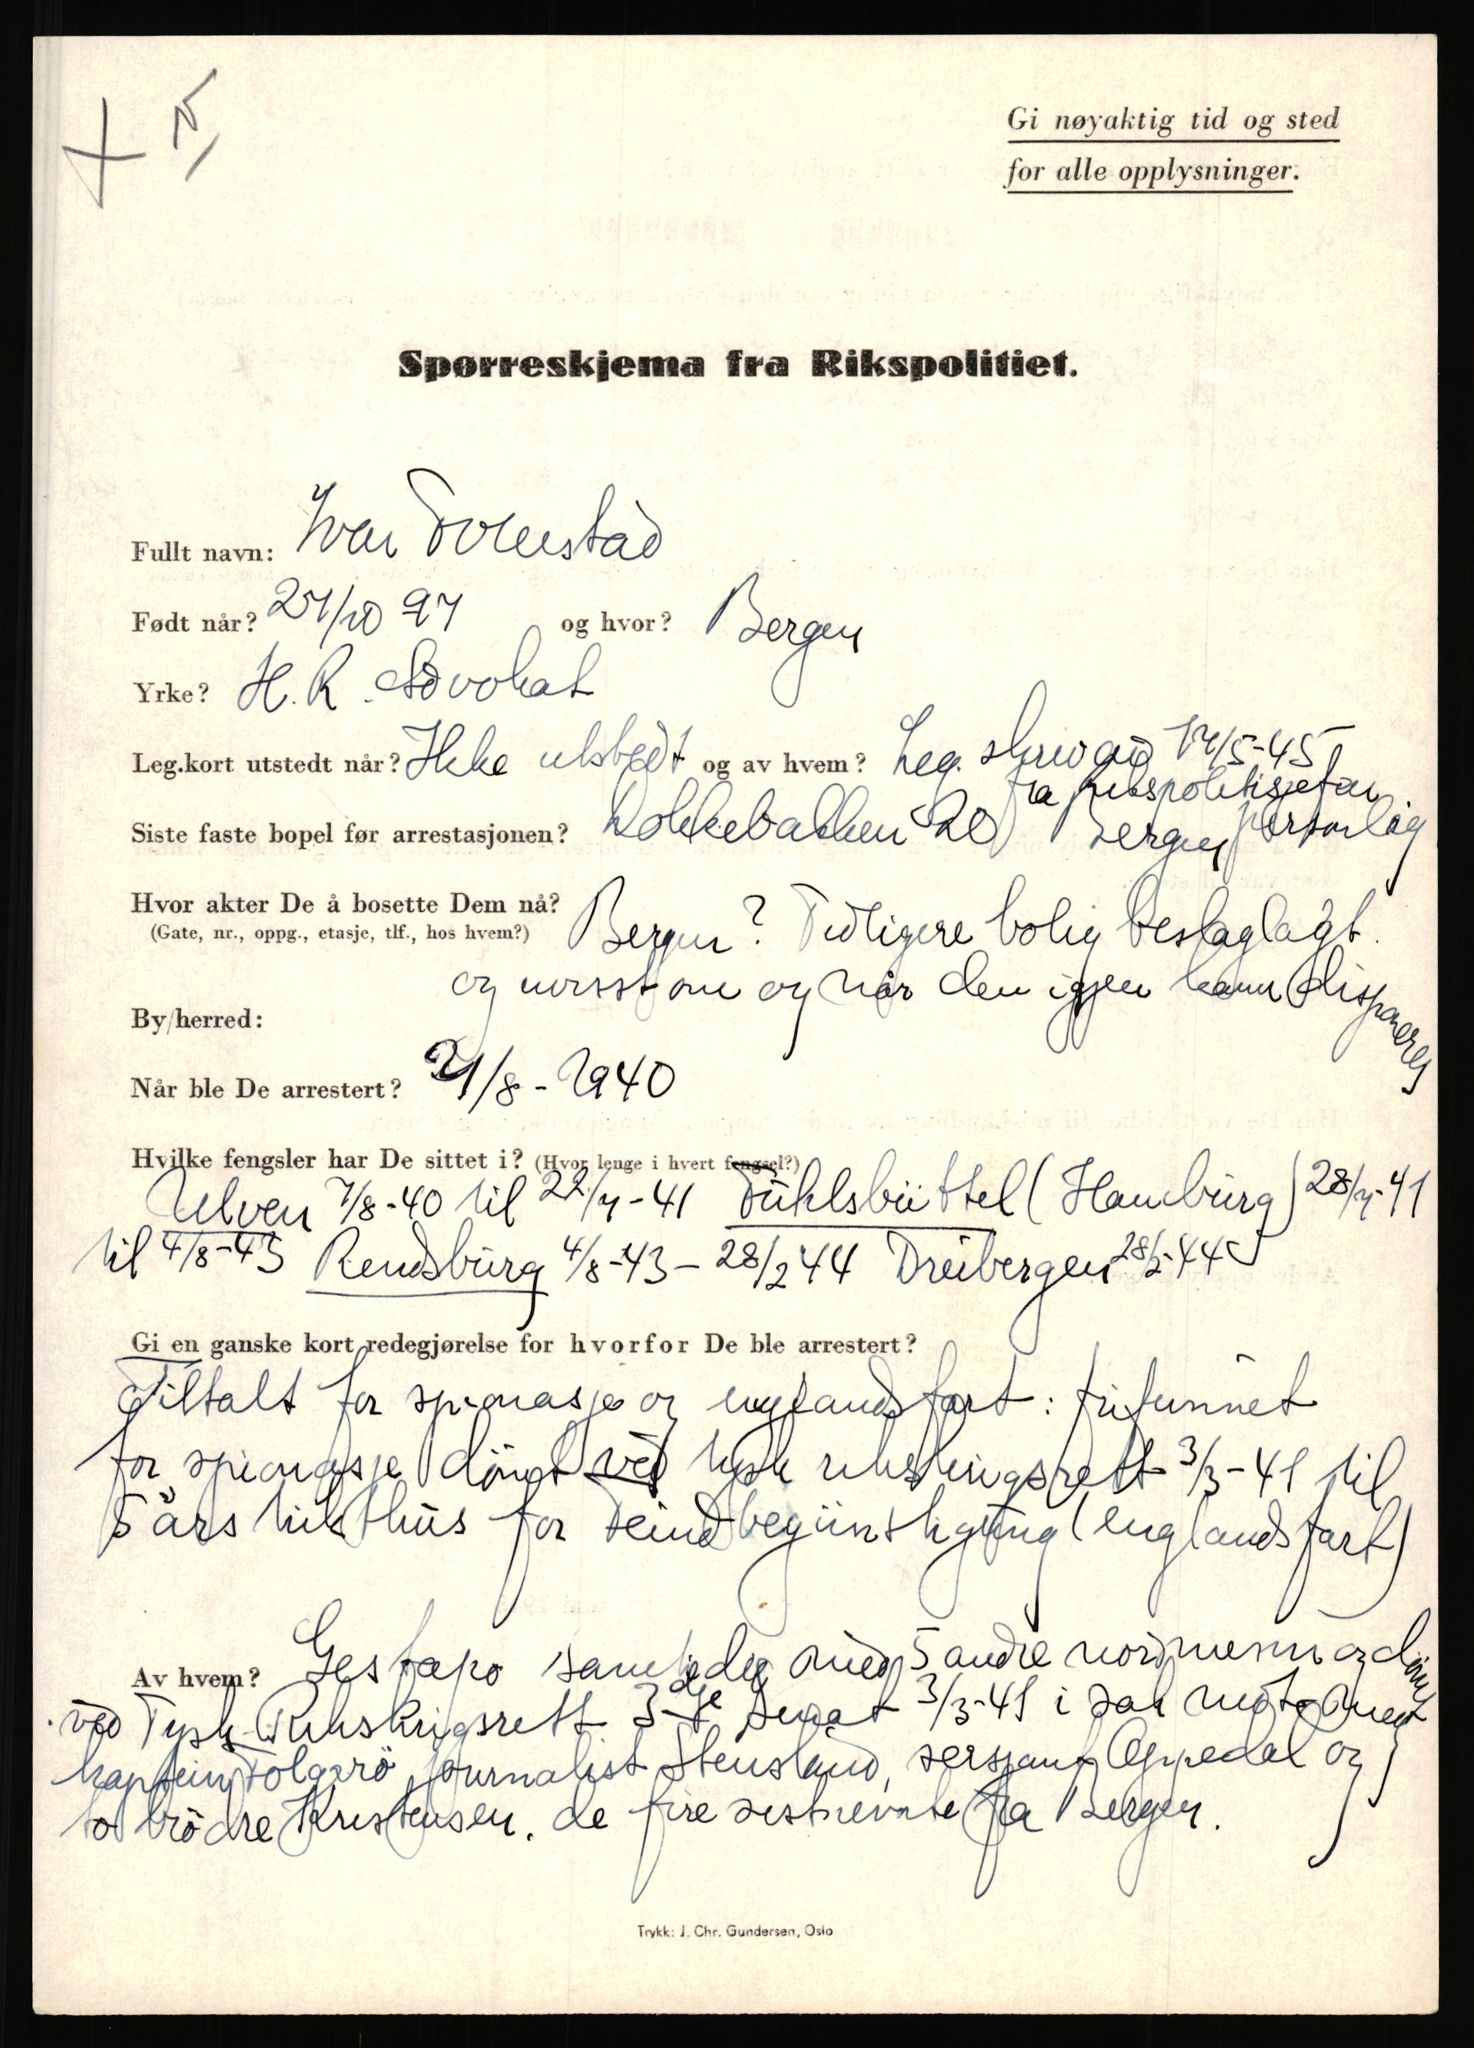 Gi nøyaktig tid og sted
for alle opplysninger.
Spørreskjema fra Rikspolitiet.
Fullt navn: Ivar
Født når? 27/10 97 og hvor? Bergen
Yrke? H. R. Advokat
Leg.kort utstedt når? Ikke utstedt og av hvem? Leg. skriv av 14/5-45
fra Rikspolitisjefen
Siste faste bopel før arrestasjonen? Dokkebakken 20 Bergen personlig
Hvor akter De å bosette Dem nå?
(Gate, nr., oppg., etasje, tlf., hos hvem?) Bergen? Tidligere bolig beslaglagt
og uvisst om og når den igjen kann disponeres
By/herred:
Når ble De arrestert? 7/8-1940
Hvilke fengsler har De sittet i? (Hvor lenge i hvert fengsel?)
Ulven 7/8-40 til 22/4-41 Fühlsbüttel (Hamburg) 28/4-41
til 4/8-43 Rendsburg 4/8-43 - 28/2 44 Dreibergen 28/2-44
Gi en ganske kort redegjørelse for hvorfor De ble arrestert?
Tiltalt for spionasje og englandsfart: frifunnet
for spionasje dömt ved tysk rikskrigsrett 3/3-41 til
5 års tukthus for Feindbegünstigung (englandsfart)
Av hvem? Gestapo samtidig med 5 andre nordmenn og dömt
ved Tysk Rikskrigsrett 3dje Senat 3/3-41 i sak mot med
kaptein Folgerö journalist Stensland, sersjant Oppedal og
to brödre Kristensen. de fire sistnevnte fra Bergen.
Trykk: J. Chr. Gundersen, Oslo